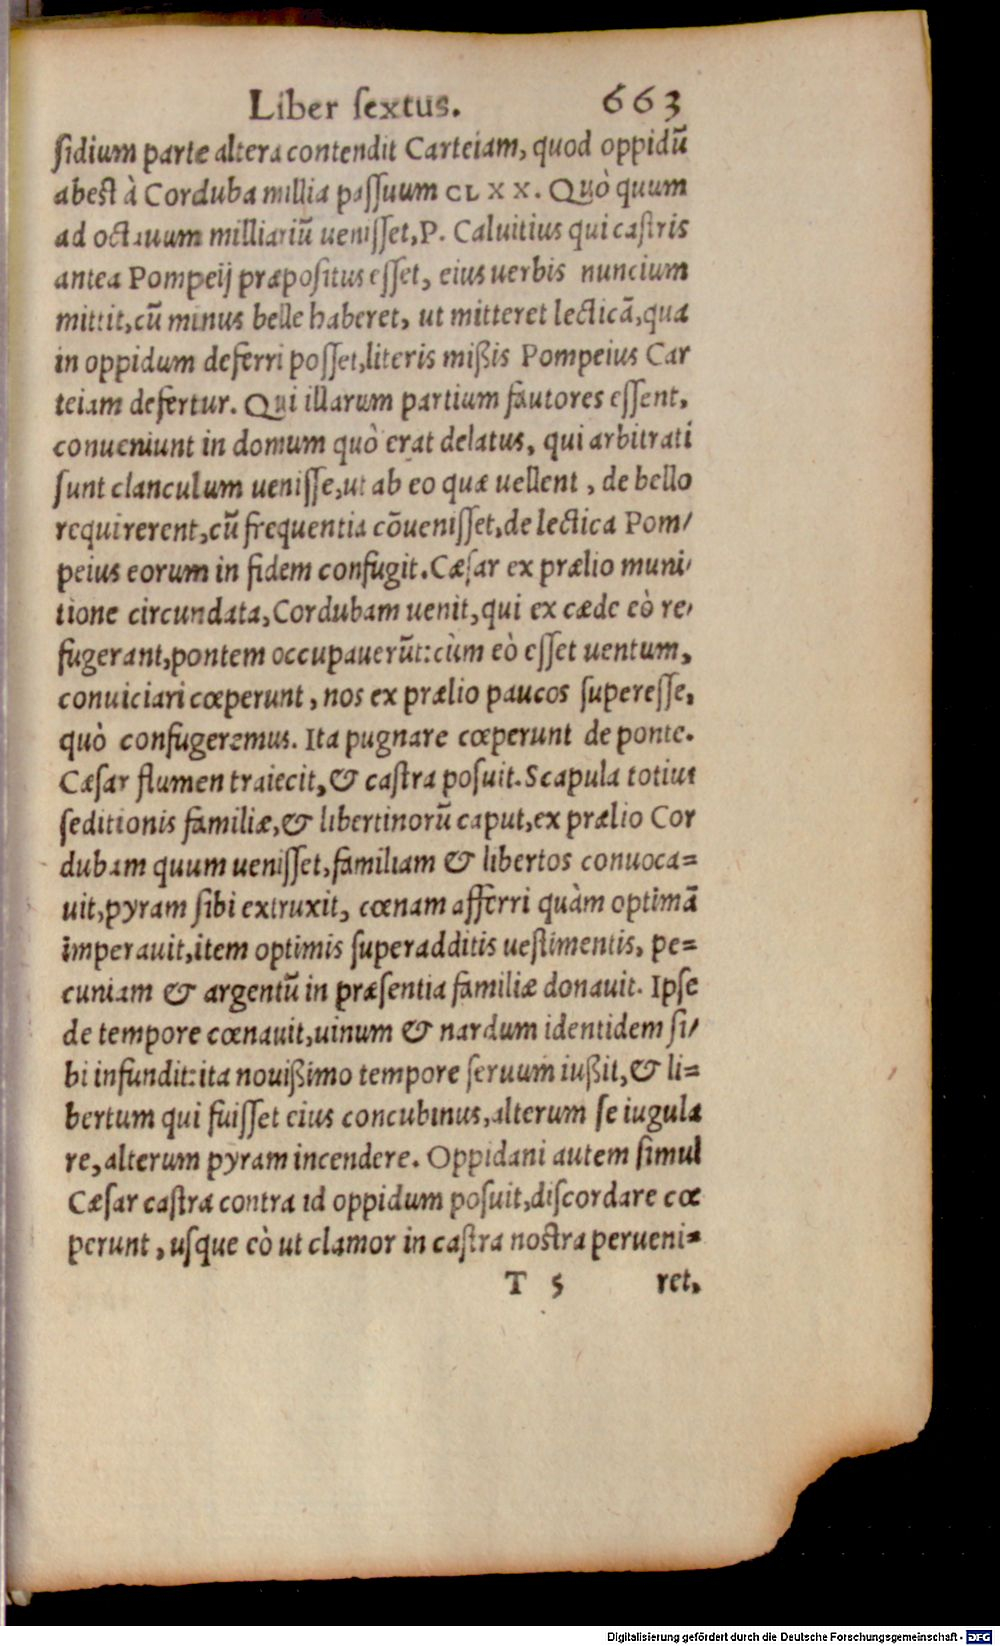 Liber ſextus. 663
ſidium parte altera contendit Carteiam, quod oppidũ
abeſt à Corduba millia paſſuum CLXX. Quò quum
ad octauum milliariũ ueniſſet, P. Caluitius qui caſtris
antea Pompeij præpoſitus eſſet, eius uerbis nuncium
mittit, cũ minus belle haberet, ut mitteret lecticã, qua
in oppidum deferri poſſet, literis mißis Pompeius Car
teiam defertur. Qui illarum partium fautores eſſent,
conueniunt in domum quò erat delatus, qui arbitrati
ſunt clanculum ueniſſe, ut ab eo quæ uellent, de bello
requirerent, cũ frequentia cõueniſſet, de lectica Pom⸗
peius eorum in fidem confugit. Cæſar ex prælio muni⸗
tione circundata, Cordubam uenit, qui ex cæde eò re⸗
fugerant, pontem occupauerũt: cùm eò eſſet uentum,
conuiciari cœperunt, nos ex prælio paucos ſupereſſe,
quò confugeremus. Ita pugnare cœperunt de ponte.
Cæſar flumen traiecit, & caſtra poſuit. Scapula totius
ſeditionis familiæ, & libertinorũ caput, ex prælio Cor
dubam quum ueniſſet, familiam & libertos conuoca⸗
uit, pyram ſibi extruxit, cœnam afferri quàm optimã
imperauit, item optimis ſuperadditis ueſtimentis, pe⸗
cuniam & argentũ in præſentia familiæ donauit. Ipſe
de tempore cœnauit, uinum & nardum identidem ſi⸗
bi infundit: ita nouißimo tempore ſeruum iußit, & li⸗
bertum qui fuiſſet eius concubinus, alterum ſe iugula
re, alterum pyram incendere. Oppidani autem ſimul
Cæſar caſtra contra id oppidum poſuit, diſcordare cœ
perunt, uſque eò ut clamor in caſtra noſtra perueni⸗
T 5 ret,
Digitalisierung gefördert durch die Deutsche Forschungsgemeinschaft - DFG